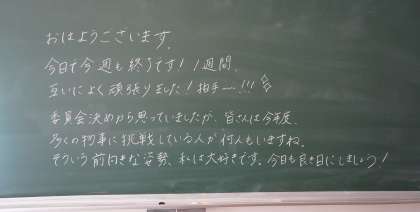 おはようございます。
今日で今週も終了です!1週間、
互いによく頑張りました!拍手ー!!!
委員会決めから思っていましたが、皆さんは今年度、
多くの物事に挑戦している人が何人もいますね。
そういう前向きな姿勢、私は大好きです。今日も良き日にしましょう!